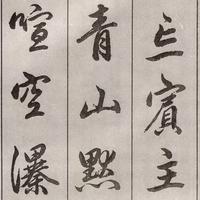 忘賓主
青山默
喧空瀑